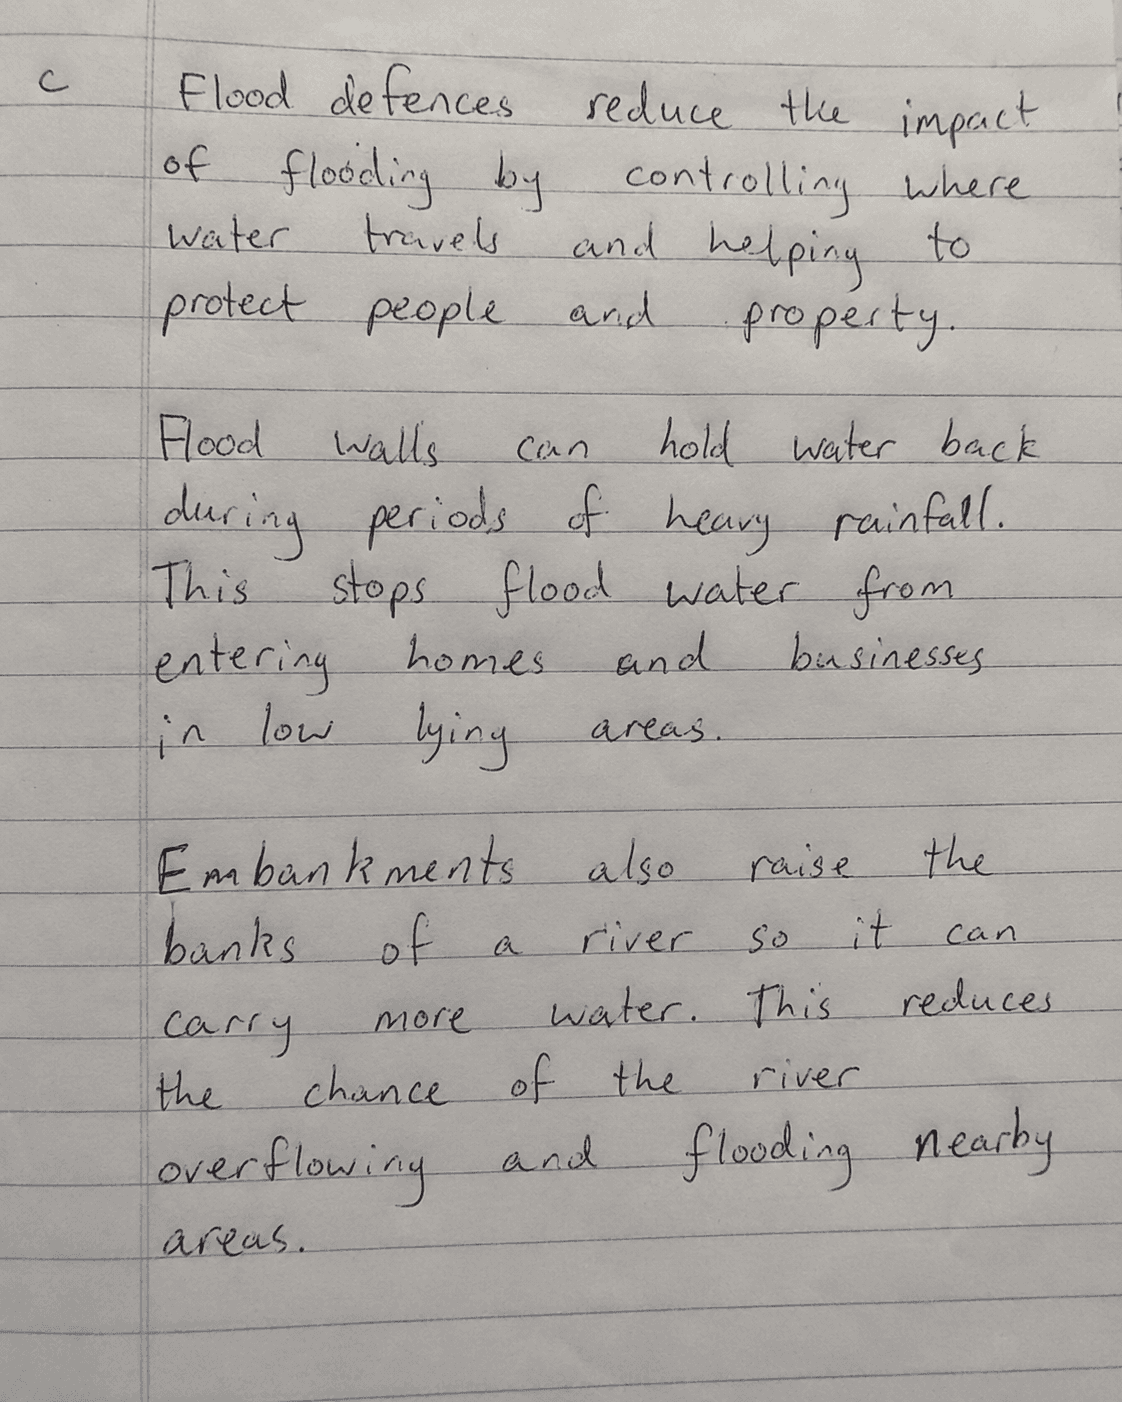 c Flood defences reduce the impact
of flooding by controlling where
water travels and helping to
protect people and property.
Flood walls can hold water back
during periods of heavy rainfall.
This stops flood water from
entering homes and businesses
in low lying areas.
Embankments also raise the
banks of a river so it can
carry more water. This reduces
the chance of the river
overflowing and flooding nearby
areas.